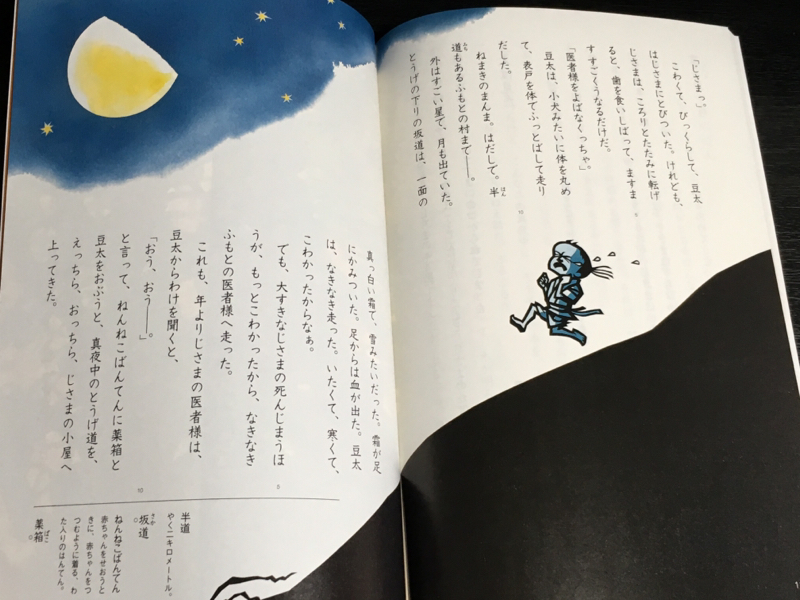 「じさまっ。」
こわくて、びっくらして、豆太
はじさまにとびついた。けれども、
じさまは、ころりとたたみに転げ
ると、歯を食いしばって、ますま
すすごくうなるだけだ。
「医者様をよばなくっちゃ。」
豆太は、小犬みたいに体を丸め
て、表戸を体でふっとばして走り
だした。
ねまきのまんま。はだしで。半
道もあるふもとの村まで――。
外はすごい星で、月も出ていた。
とうげの下りの坂道は、一面の
真っ白い霜で、雪みたいだった。霜が足
にかみついた。足からは血が出た。豆太
は、なきなき走った。いたくて、寒くて、
こわかったからなぁ。
でも、大すきなじさまの死んじまうほ
うが、もっとこわかったから、なきなき
ふもとの医者様へ走った。
これも、年よりじさまの医者様は、
豆太からわけを聞くと、
「おう、おう――。」
と言って、ねんねこばんてんに薬箱と
豆太をおぶうと、真夜中のとうげ道を、
えっちら、おっちら、じさまの小屋へ
上ってきた。
半道
やく二キロメートル。
坂道
ねんねこばんてん
赤ちゃんをせおうと
きに、赤ちゃんをつ
つむように着る、わ
た入りのはんてん。
薬箱